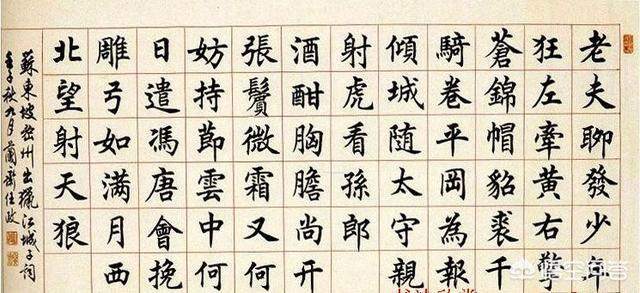 老夫聊發少年
狂左牽黃右擎
蒼錦帽貂裘千
騎卷平岡為報
傾城隨太守親
射虎看孫郎
酒酣胸膽尚开
張鬢微霜又何
妨持節雲中何
日遣馮唐會挽
雕弓如满月西
北望射天狼
蘇東坡密州出獵江城子詞
壬子秋九月蘭齋任政
悟空问答